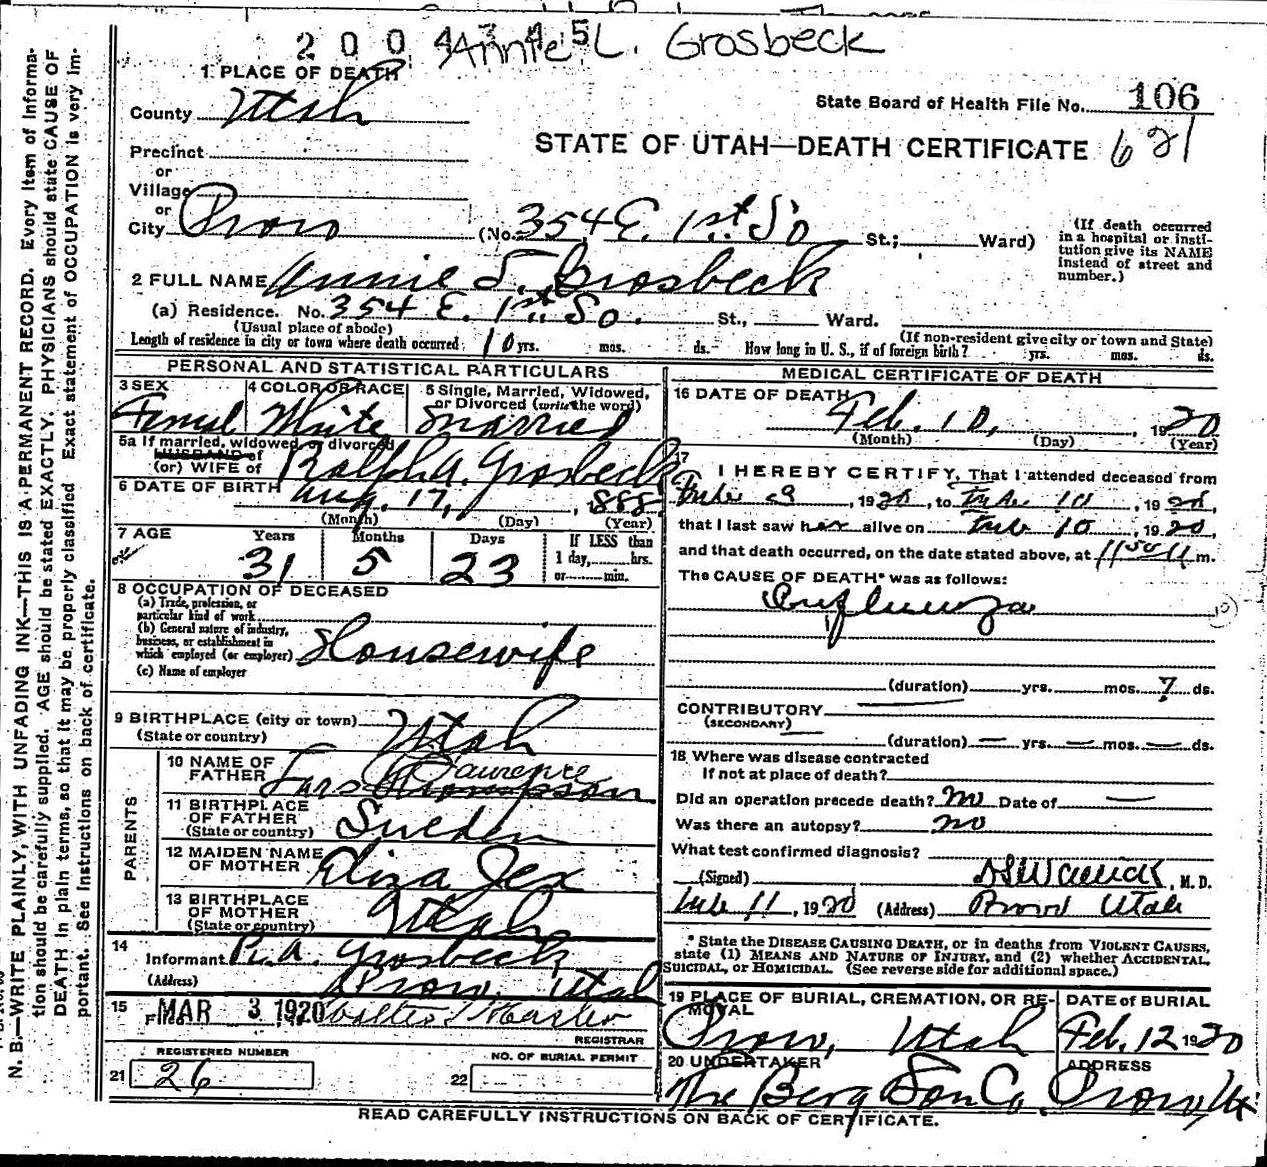 2 0 0 4 3 4 5
Annie L. Grosbeck
1 PLACE OF DEATH
County Utah
State Board of Health File No. 106
STATE OF UTAH—DEATH CERTIFICATE 621
Precinct
or
Village
or
City Provo (No. 354 E. 1st So St.; Ward)
(If death occurred in a hospital or institution give its NAME instead of street and number.)
2 FULL NAME Annie L. Grosbeck
(a) Residence. No. 354 E. 1st. So. St., Ward.
(Usual place of abode) (If non-resident give city or town and State)
Length of residence in city or town where death occurred 10 yrs. mos. ds. How long in U. S., if of foreign birth? yrs. mos. ds.
N. B.—WRITE PLAINLY, WITH UNFADING INK—THIS IS A PERMANENT RECORD. Every item of Informa-
tion should be carefully supplied. AGE should be stated EXACTLY. PHYSICIANS should state CAUSE OF
DEATH in plain terms, so that it may be properly classified. Exact statement of OCCUPATION is very im-
portant. See Instructions on back of certificate.
PERSONAL AND STATISTICAL PARTICULARS
3 SEX Femal
4 COLOR OR RACE White
5 Single, Married, Widowed, or Divorced (write the word) Married
5a If married, widowed or divorced
HUSBAND of
(or) WIFE of Ralph A. Grosbeck
6 DATE OF BIRTH Aug. 17, 1888
(Month) (Day) (Year)
7 AGE Years 31 Months 5 Days 23
If LESS than 1 day, hrs. or min.
8 OCCUPATION OF DECEASED
(a) Trade, profession, or particular kind of work
(b) General nature of industry, business, or establishment in which employed (or employer) Housewife
(c) Name of employer
9 BIRTHPLACE (city or town) Utah
(State or country)
PARENTS
10 NAME OF FATHER Lars Thompson Lawrence
11 BIRTHPLACE OF FATHER Sweden
(State or country)
12 MAIDEN NAME OF MOTHER Eliza Jex
13 BIRTHPLACE OF MOTHER Utah
(State or country)
14
Informant R. A. Grosbeck
(Address) Provo, Utah
15 Filed MAR 3 1920
REGISTRAR
REGISTERED NUMBER
21 26
NO. OF BURIAL PERMIT
22
MEDICAL CERTIFICATE OF DEATH
16 DATE OF DEATH Feb. 10, 1920
(Month) (Day) (Year)
17
I HEREBY CERTIFY, That I attended deceased from
Feb 9, 1920, to Feb 10, 1920,
that I last saw her alive on Feb 10, 1920,
and that death occurred, on the date stated above, at 11 50 m.
The CAUSE OF DEATH* was as follows:
Influenza
(duration) yrs. mos. 7 ds.
CONTRIBUTORY —
(SECONDARY)
(duration) — yrs. — mos. — ds.
18 Where was disease contracted
If not at place of death?
Did an operation precede death? no Date of —
Was there an autopsy? no
What test confirmed diagnosis?
(Signed) , M. D.
Feb 11, 1920 (Address) Provo Utah
* State the DISEASE CAUSING DEATH, or in deaths from VIOLENT CAUSES,
state (1) MEANS AND NATURE OF INJURY, and (2) whether ACCIDENTAL,
SUICIDAL, or HOMICIDAL. (See reverse side for additional space.)
19 PLACE OF BURIAL, CREMATION, OR REMOVAL
Provo, Utah
DATE of BURIAL
Feb. 12 1920
20 UNDERTAKER
The Berg Son Co.
ADDRESS
Provo, Ut
READ CAREFULLY INSTRUCTIONS ON BACK OF CERTIFICATE.